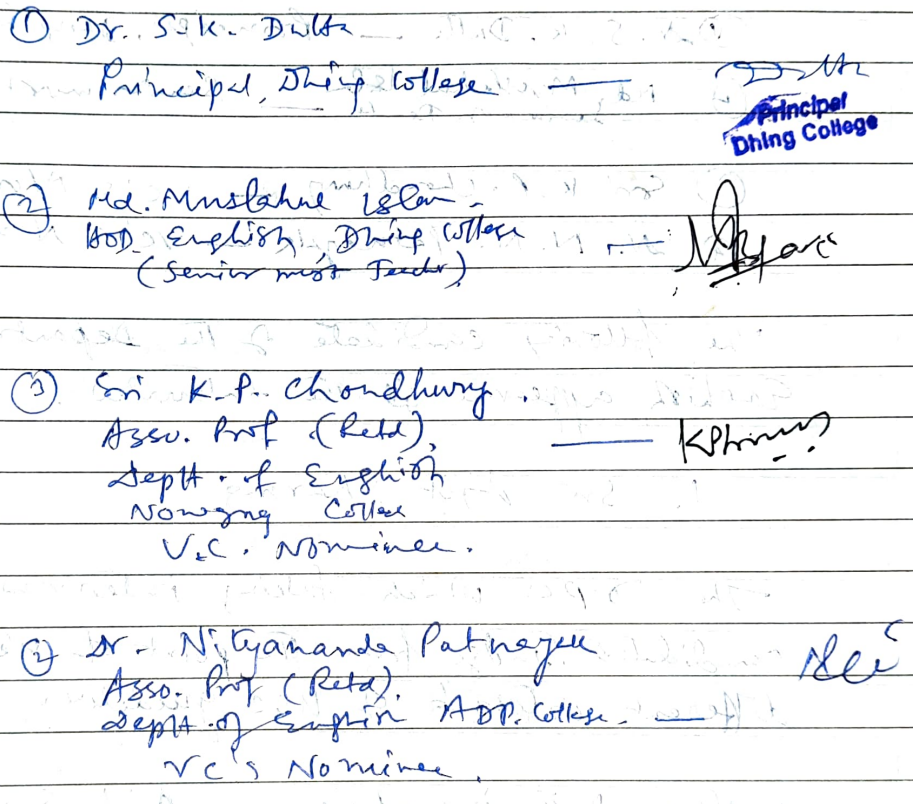 ① Dr. S.K. Dutta
Principal, Dhing College —
Principal
Dhing College
② Md. Muslahue Islam
HOD English, Dhing College —
(Senior most Teacher)
③ Sri K.P. Choudhury.
Asso. Prof (Retd),
Deptt. of English
Nowgong College
V.C. Nominee.
④ Dr. Nityananda Patnayak
Asso. Prof (Retd).
Deptt. of English ADP. College. —
VC's Nominee.